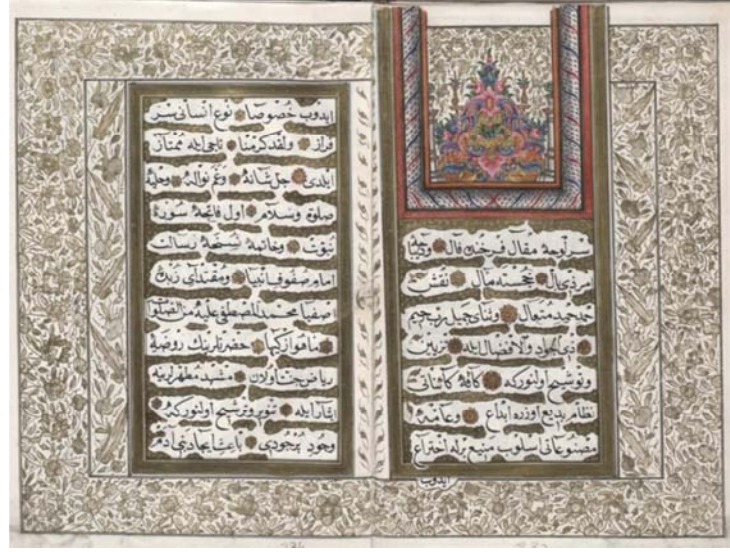 سرلوحهٔ مقال فرخنده فال و دیباجهٔ
خجسته مآل نقش
حمد حمید متعال و ثنای جمیل رحیم
ذی الجود والافضال ایله تزیین
و توشیح اولنورکه کافهٔ کائناتی
نظام بدیع اوزره ابداع و عامهٔ
مصنوعاتی اسلوب منیع برله اختراع
ایدوب
ایدوب خصوصا نوع انسانی سر
فراز ولقد کرمنا تاجی ایله ممتاز
ایلدی جل شانه وعم نواله وحلیهٔ
صلوة وسلام اول فاتحهٔ سورهٔ
نبوت وخاتمهٔ نسخهٔ رسالت
امام صفوف انبیا ومقتدای زمرهٔ
اصفیا محمد المصطفی علیه من الصلوات
ماهو ازکیها حضرتلرینک روضهٔ
ریاض جنان اولان مشهد مطهرلرینه
ایثار ایله تنویر و ترشیح اولنورکه
وجود پرجودی باعث ایجاد بنی آدم